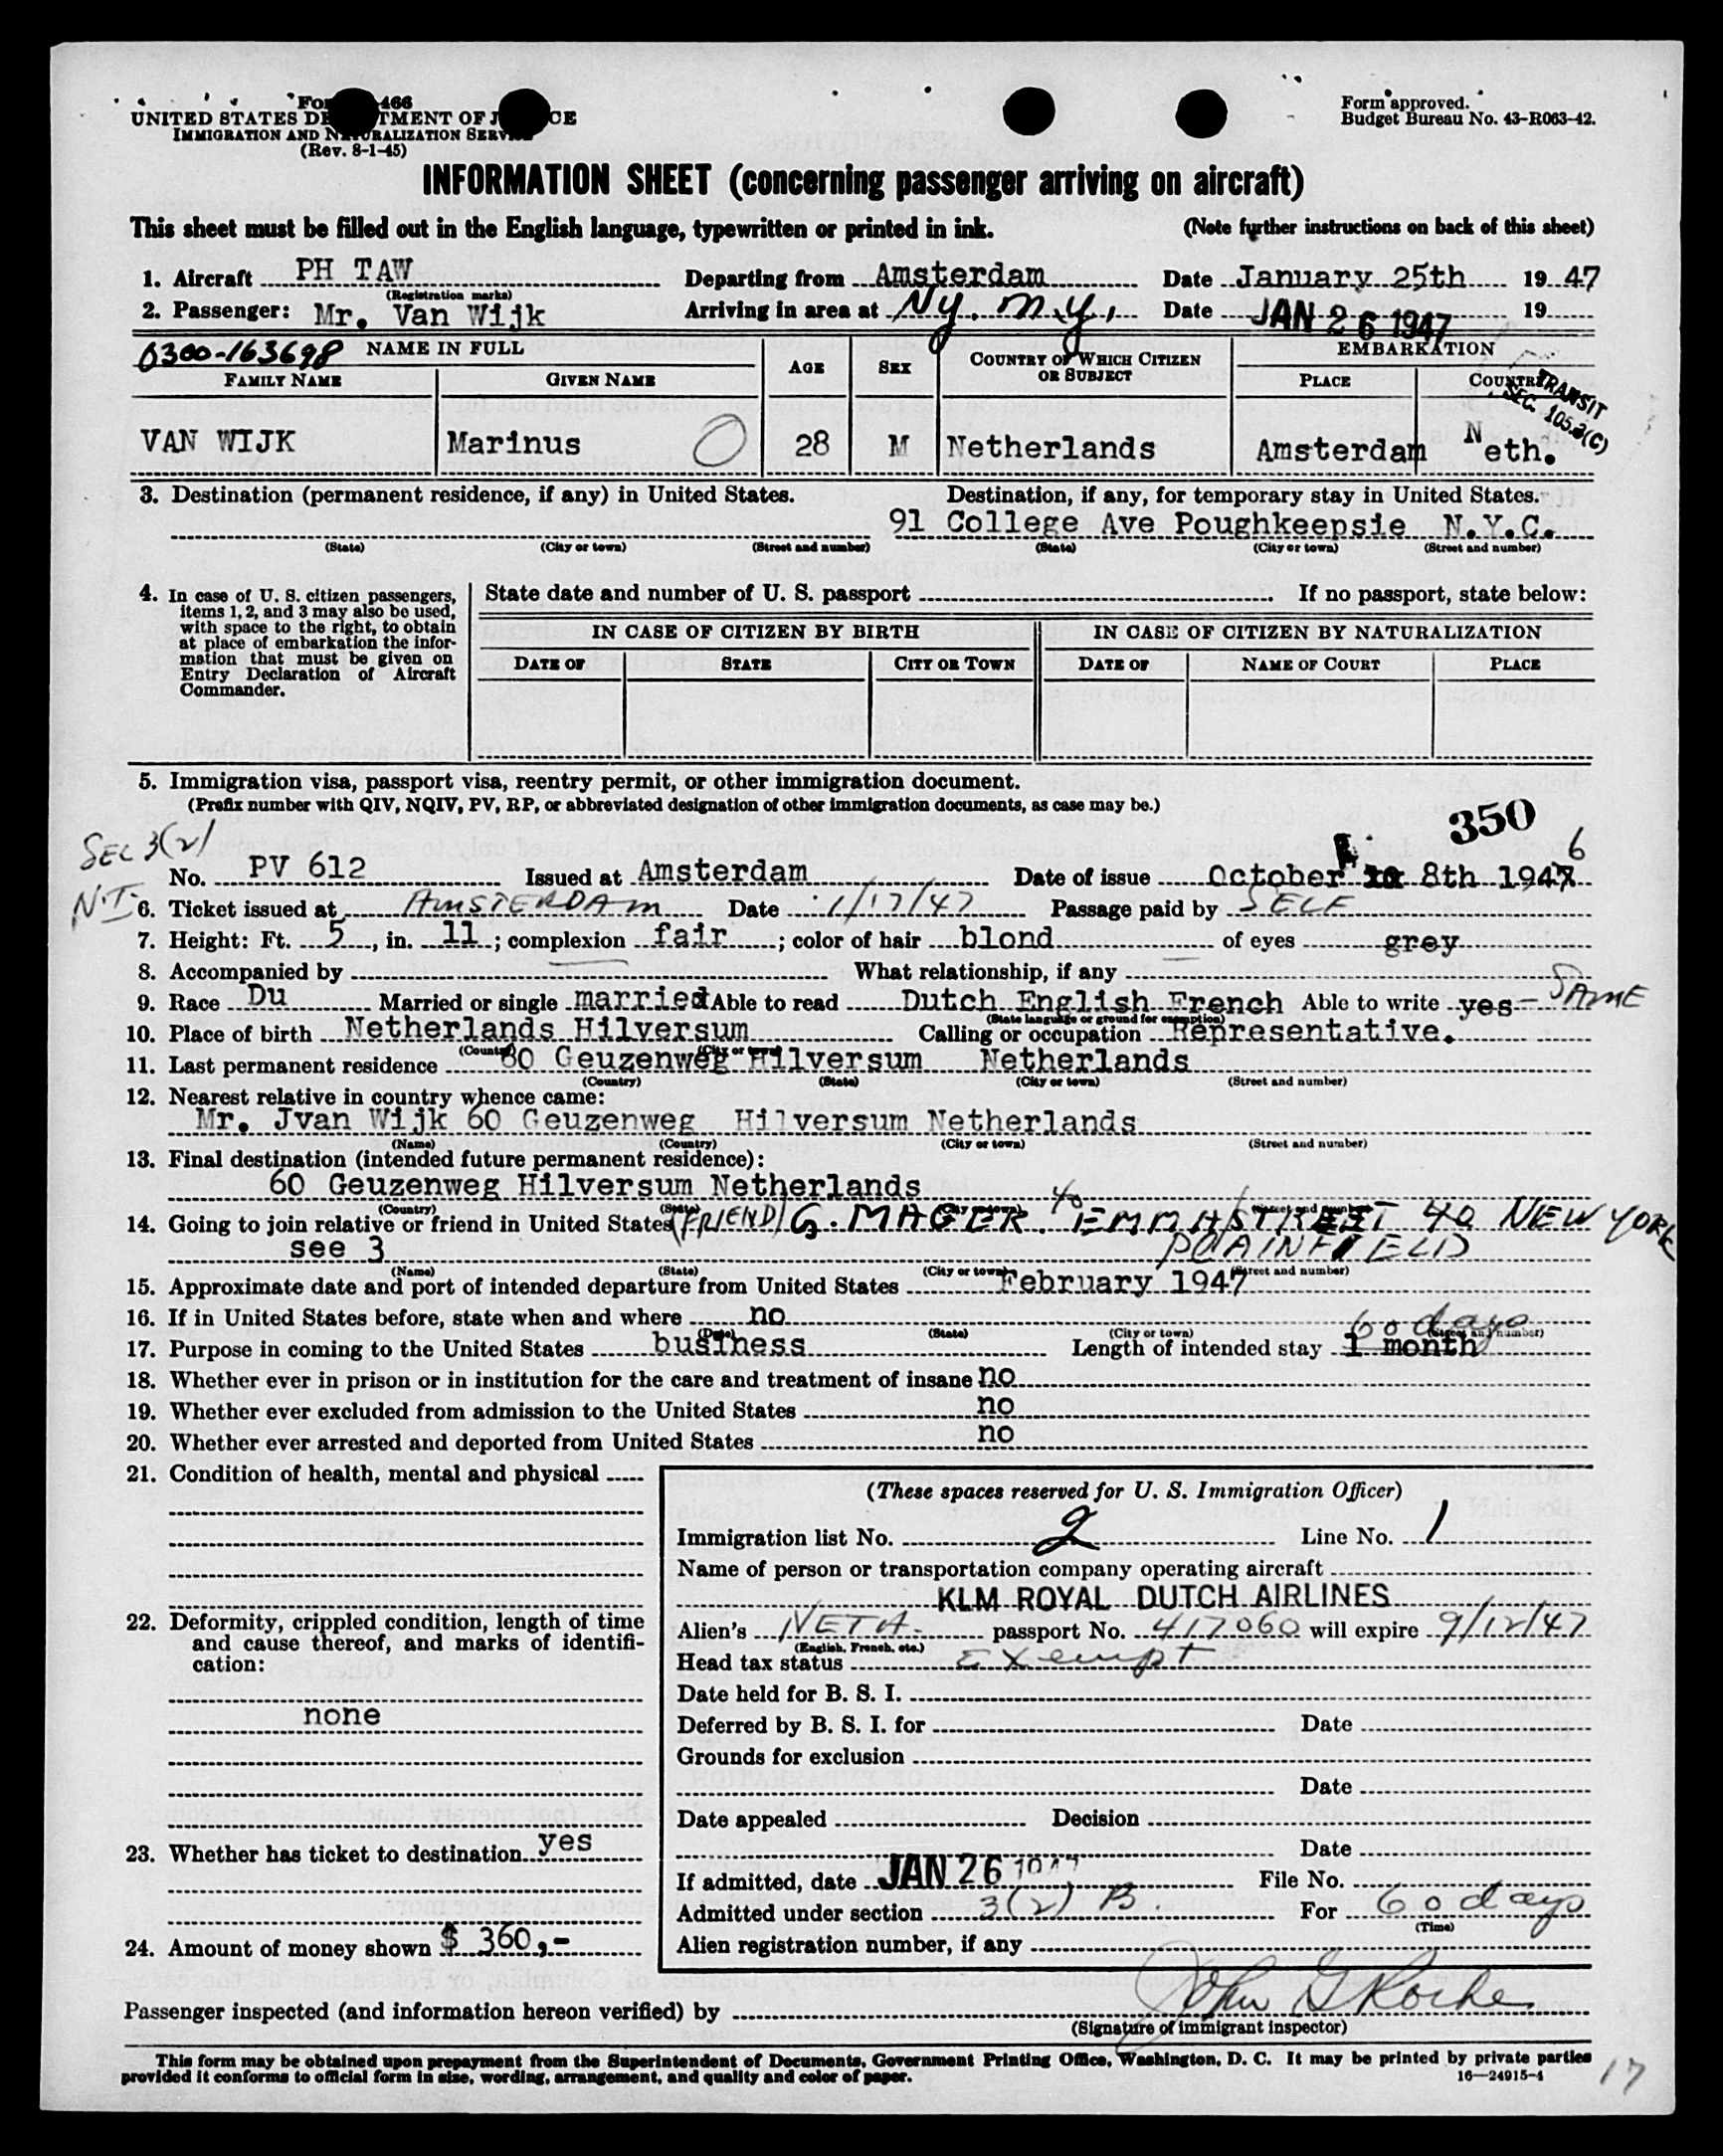 Form approved.
UNITED STATES DE TMENT OF J CE
Budget Bureau No. 43-R063-42.
IMMIGRATION AND NATURALIZATION SERVICE
(Rev. 8-1-45)
INFORMATION SHEET (concerning passenger arriving on aircraft)
This sheet must be filled out in the English language, typewritten or printed in ink. (Note further instructions on back of this sheet)
1. Aircraft PH TAW Departing from Amsterdam Date January 25th 1947
(Registration marks)
2. Passenger: Mr. Van Wijk Arriving in area at Ny. n.y. Date JAN 26 1947 19
0300-163698 NAME IN FULL AGE SEX COUNTRY OF WHICH CITIZEN OR SUBJECT EMBARKATION
FAMILY NAME GIVEN NAME PLACE COUNTRY
TRANSIT
SEC. 105.3(C)
VAN WIJK Marinus 28 M Netherlands Amsterdam Neth.
3. Destination (permanent residence, if any) in United States. Destination, if any, for temporary stay in United States.
91 College Ave Poughkeepsie N.Y.C.
(State) (City or town) (Street and number) (State) (City or town) (Street and number)
4. In case of U. S. citizen passengers, items 1, 2, and 3 may also be used, with space to the right, to obtain at place of embarkation the information that must be given on Entry Declaration of Aircraft Commander.
State date and number of U. S. passport . If no passport, state below:
IN CASE OF CITIZEN BY BIRTH IN CASE OF CITIZEN BY NATURALIZATION
DATE OF STATE CITY OR TOWN DATE OF NAME OF COURT PLACE
5. Immigration visa, passport visa, reentry permit, or other immigration document.
(Prefix number with QIV, NQIV, PV, RP, or abbreviated designation of other immigration documents, as case may be.)
350
SEC 3(2)
N.I.
No. PV 612 Issued at Amsterdam Date of issue October 8th 1946
6. Ticket issued at AMSTERDAM Date 1/17/47 Passage paid by SELF
7. Height: Ft. 5, in. 11; complexion fair; color of hair blond of eyes grey
8. Accompanied by What relationship, if any
9. Race Du Married or single married Able to read Dutch English French Able to write yes - SAME
(State language or ground for exemption)
10. Place of birth Netherlands Hilversum Calling or occupation Representative.
(Country) (City or town)
11. Last permanent residence 60 Geuzenweg Hilversum Netherlands
(Country) (State) (City or town) (Street and number)
12. Nearest relative in country whence came:
Mr. Jvan Wijk 60 Geuzenweg Hilversum Netherlands
(Name) (Country) (City or town) (Street and number)
13. Final destination (intended future permanent residence):
60 Geuzenweg Hilversum Netherlands
(Country) (State) (City or town) (Street and number)
14. Going to join relative or friend in United States (FRIEND) G. MAGER. 40 EMMASTREET 40 NEW YORK
see 3 PLAINFIELD
(Name) (State) (City or town) (Street and number)
15. Approximate date and port of intended departure from United States February 1947
16. If in United States before, state when and where no
(Date) (State) (City or town) (Street and number)
60 days
17. Purpose in coming to the United States business Length of intended stay 1 month
18. Whether ever in prison or in institution for the care and treatment of insane no
19. Whether ever excluded from admission to the United States no
20. Whether ever arrested and deported from United States no
21. Condition of health, mental and physical
22. Deformity, crippled condition, length of time and cause thereof, and marks of identification:
none
23. Whether has ticket to destination yes
24. Amount of money shown $ 360,-
(These spaces reserved for U. S. Immigration Officer)
Immigration list No. 2 Line No. 1
Name of person or transportation company operating aircraft
KLM ROYAL DUTCH AIRLINES
Alien's NETH. passport No. 417060 will expire 9/12/47
(English, French, etc.)
Head tax status Exempt
Date held for B. S. I.
Deferred by B. S. I. for Date
Grounds for exclusion
Date
Date appealed Decision
Date
If admitted, date JAN 26 1947 File No.
Admitted under section 3(2) B. For 60 days
(Time)
Alien registration number, if any
Passenger inspected (and information hereon verified) by John G Roche
(Signature of immigrant inspector)
This form may be obtained upon prepayment from the Superintendent of Documents, Government Printing Office, Washington, D. C. It may be printed by private parties
provided it conforms to official form in size, wording, arrangement, and quality and color of paper. 16—24915-4
17